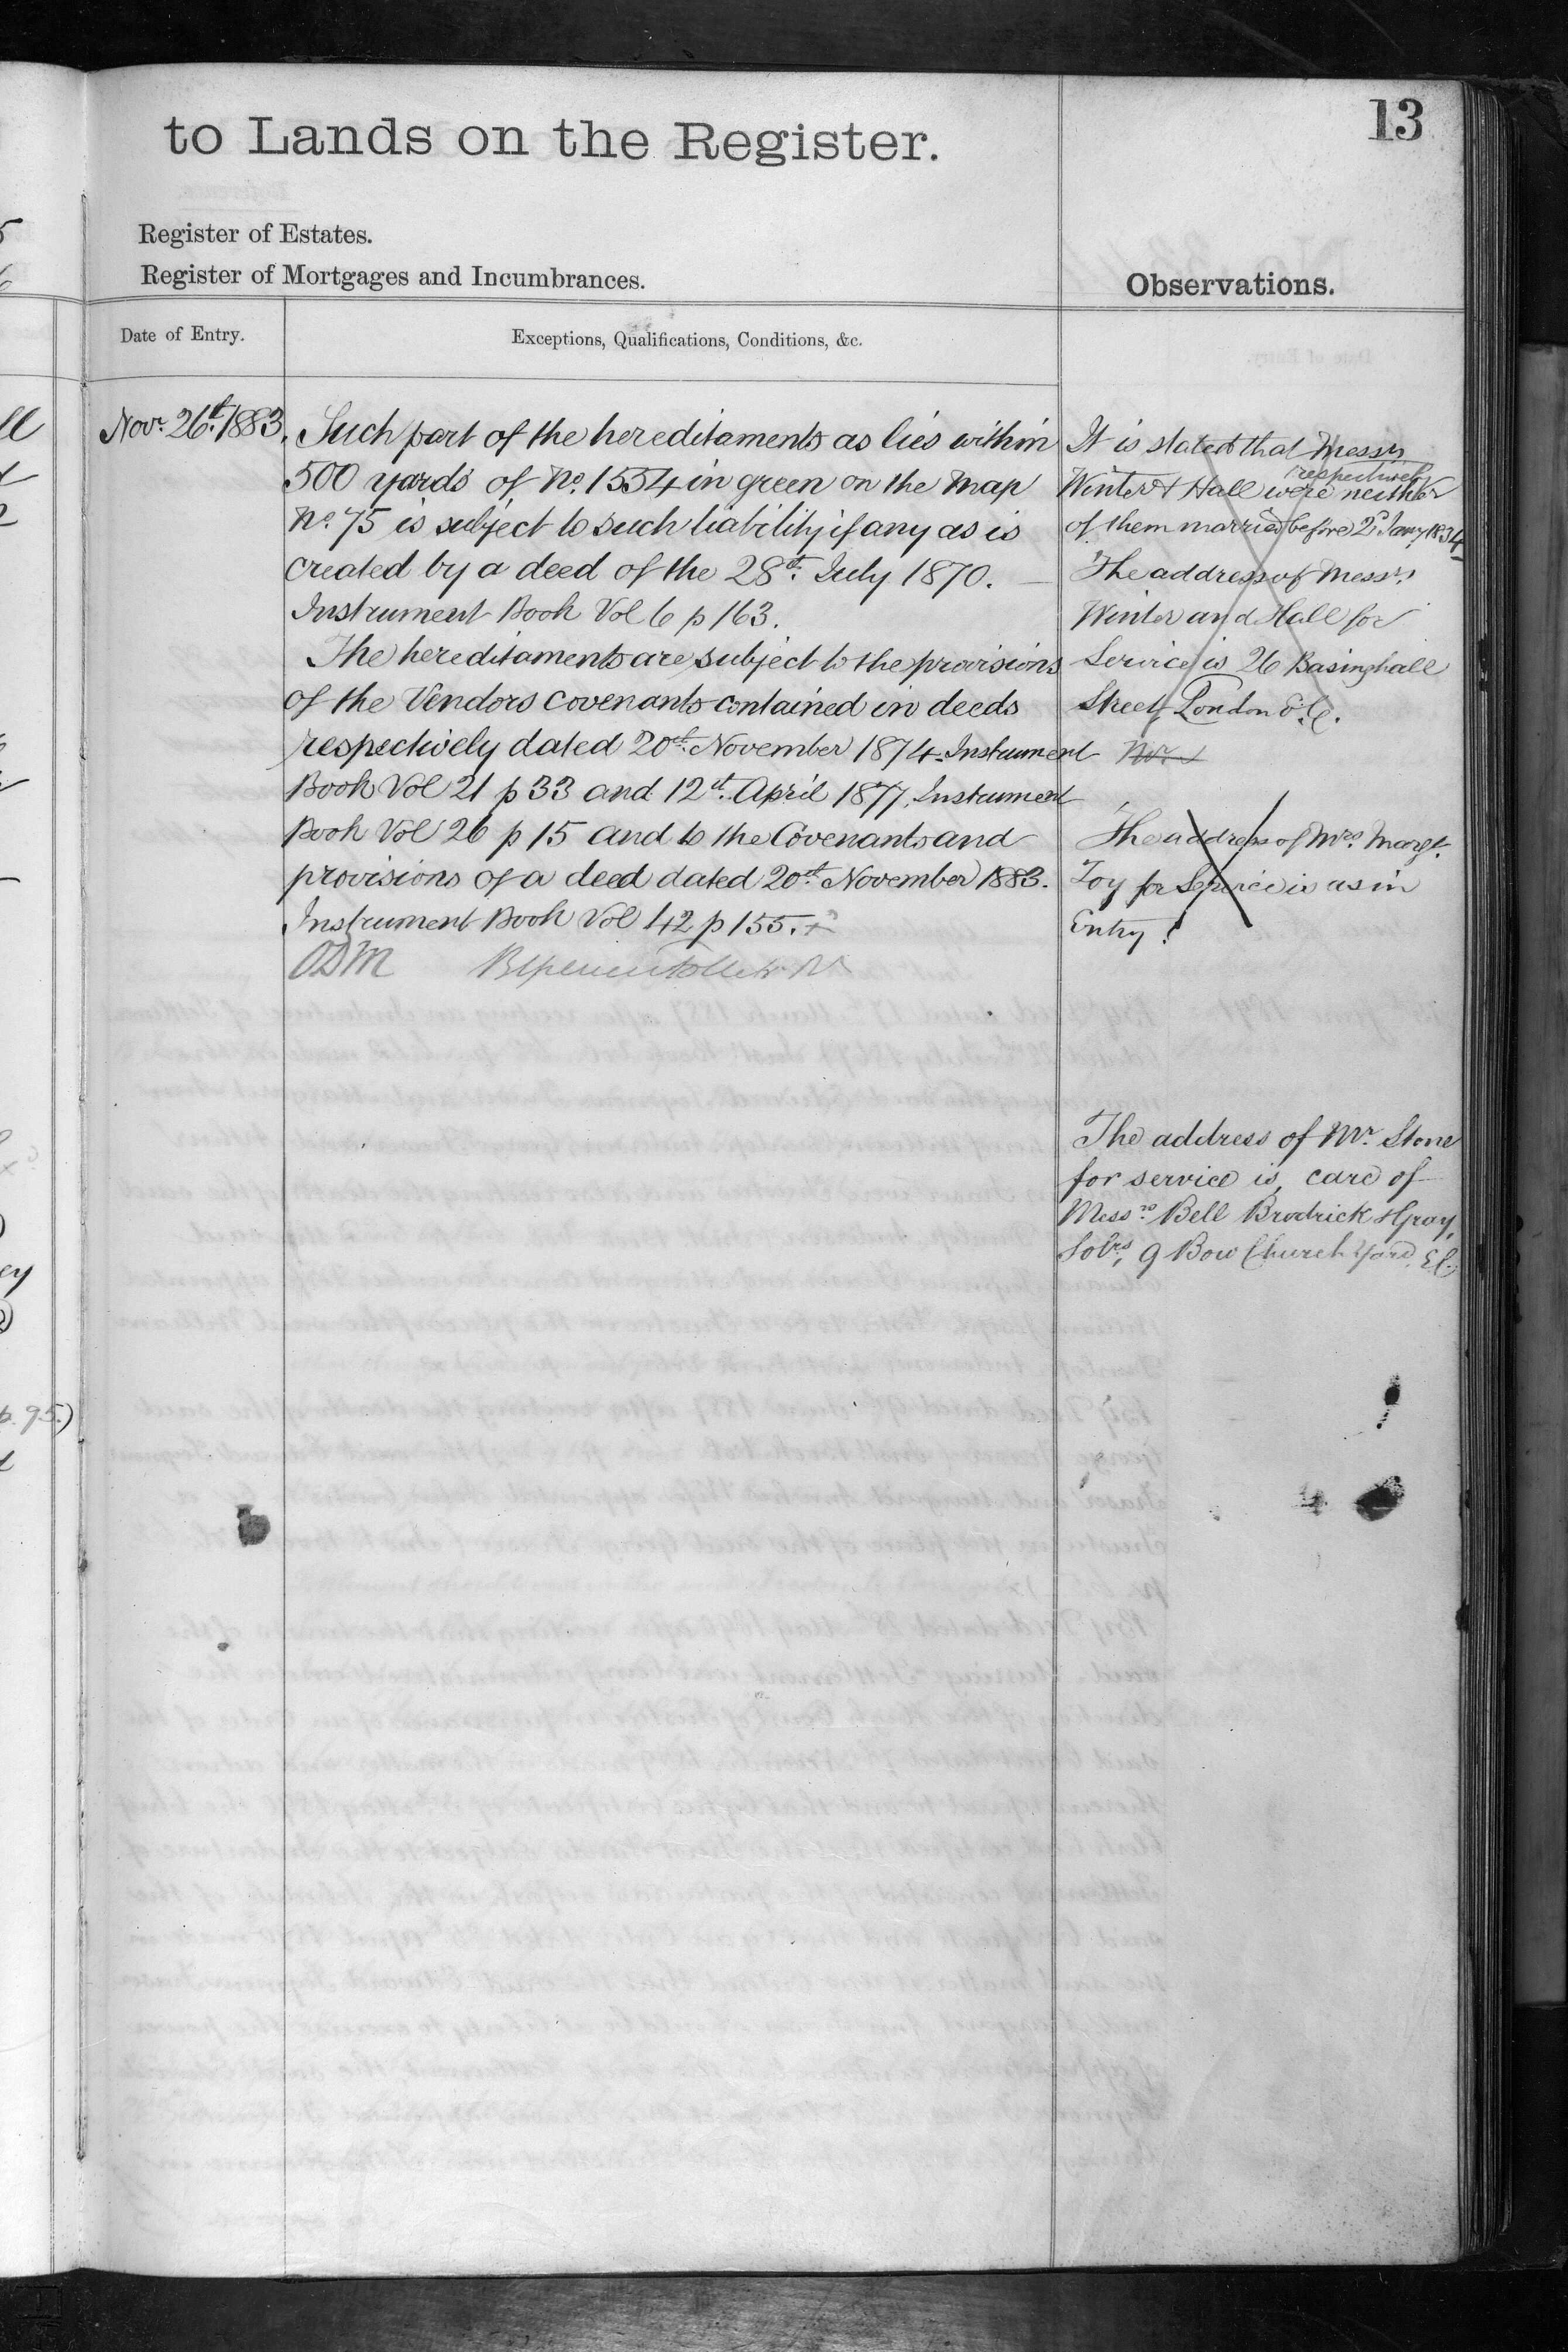 to Lands on the Register.
13
Register of Estates.
Register of Mortgages and Incumbrances.
Observations.
Date of Entry.
Exceptions, Qualifications, Conditions, &c.
Novr. 26th. 1883.
Such part of the hereditaments as lies within
500 yards of No. 1554 in green on the Map
No. 75 is subject to such liability if any as is
created by a deed of the 28th. July 1870. —
Instrument Book Vol 6 p 163.
The hereditaments are subject to the provisions
of the Vendors covenants contained in deeds
respectively dated 20th. November 1874. Instrument
Book Vol 21 p 33 and 12th. April 1877, Instrument
Book Vol 26 p 15 and to the Covenants and
provisions of a deed dated 20th. November 1883.
Instrument Book Vol 42 p 155. +
ODM
It is stated that Messrs
respectively
Winter & Hall were neither
of them married before 2d Jany 1834
The address of Messrs.
Winter and Hall for
Service is 26 Basinghall
Street, London E.C.
The address of Mrs. Margt.
Toy for Service is as in
Entry.
The address of Mr. Stone
for service is, care of
Messrs. Bell Brodrick & Gray,
Solrs, 9 Bow Church Yard, E.C.
p. 95.)